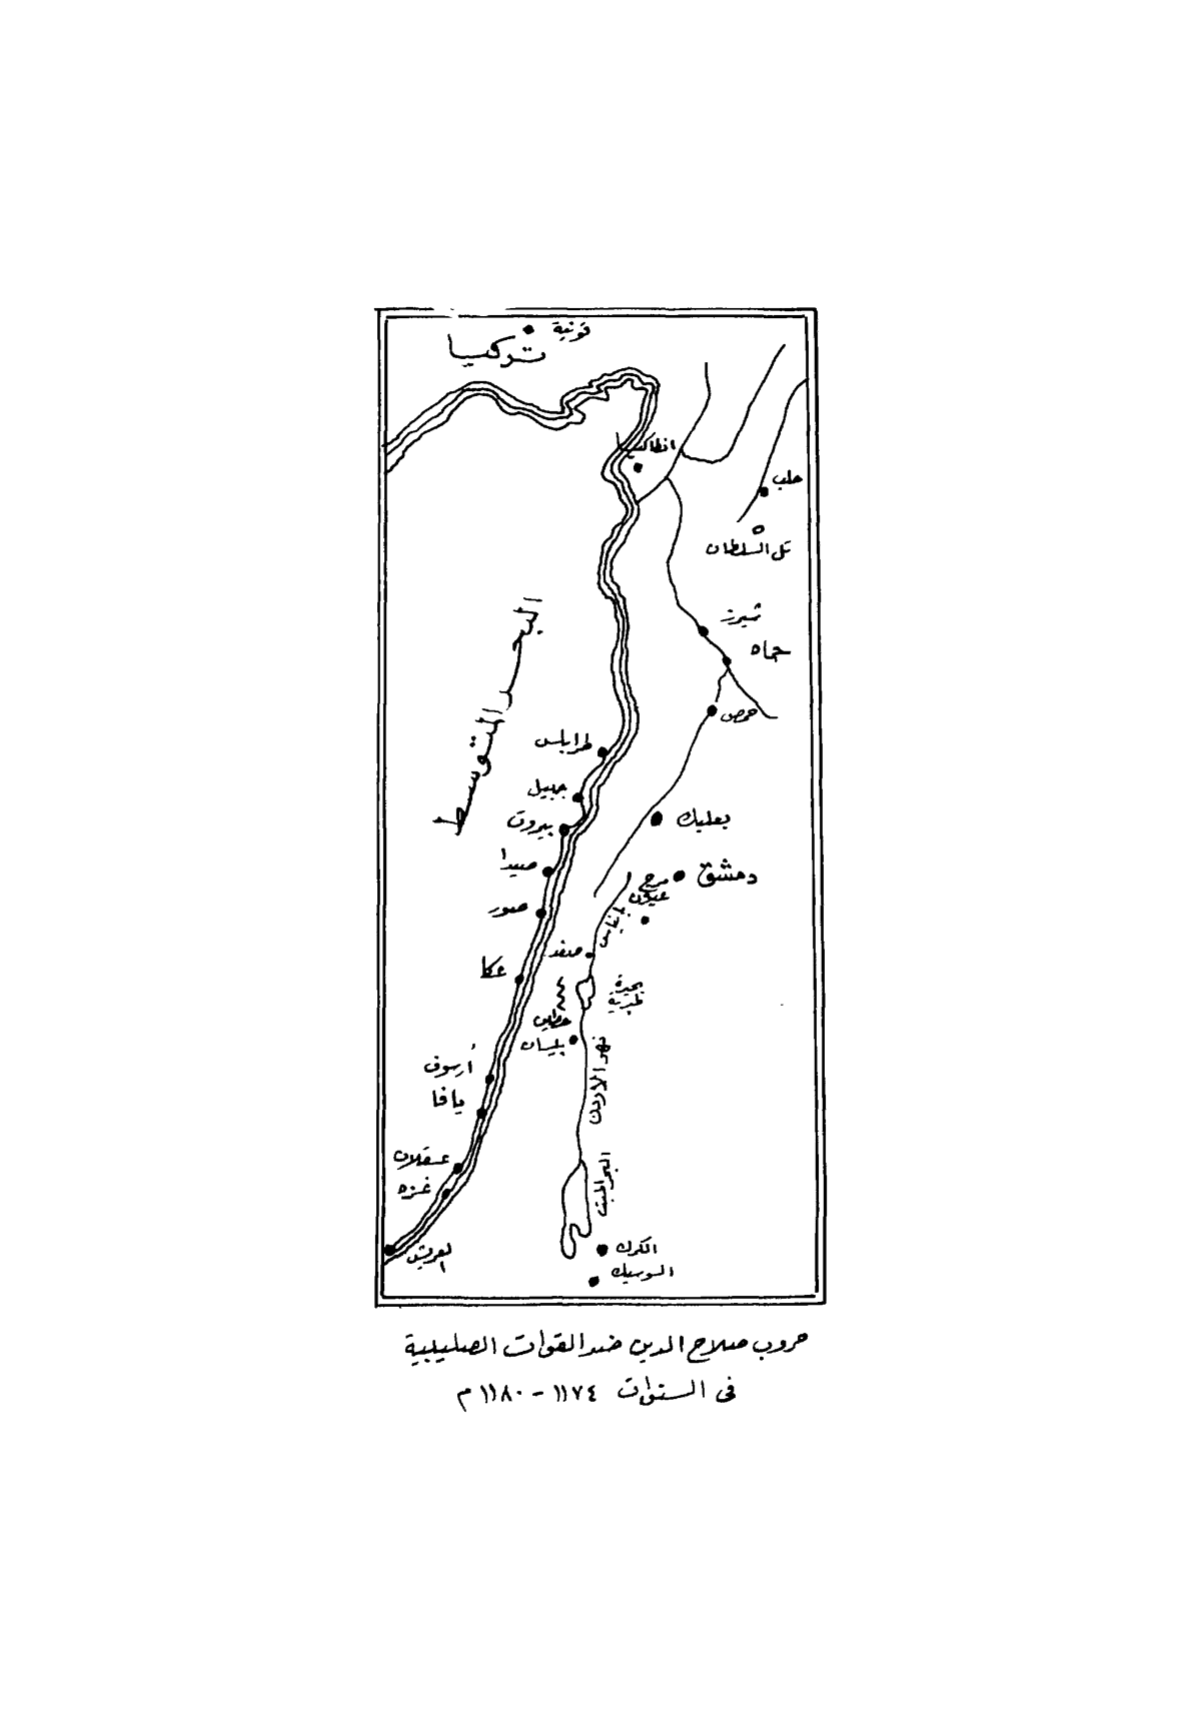 قونية
تركيا
انطاكيا
حلب
تل السلطان
شيرز
حماه
حمص
البحر المتوسط
طرابلس
جبيل
بيروت
بعلبك
صيدا
دمشق
مرج
عيون
بانياس
صور
صفد
عكا
بحيرة
طبرية
حطين
بليسان
نهر الاردن
أرسوف
يافا
عسقلان
البحر الميت
غزه
العريش
الكرك
السوبيك
حروب صلاح الدين ضد القوات الصليبية
فى السنوات ١١٧٤ - ١١٨٠ م